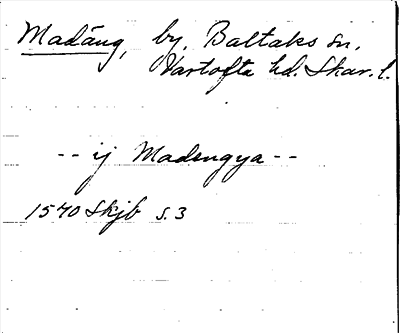 Madäng, by, Baltaks sn.
Vartofta hd. Skar. l.
-- ij Madengya --
1540 Skjb s. 3